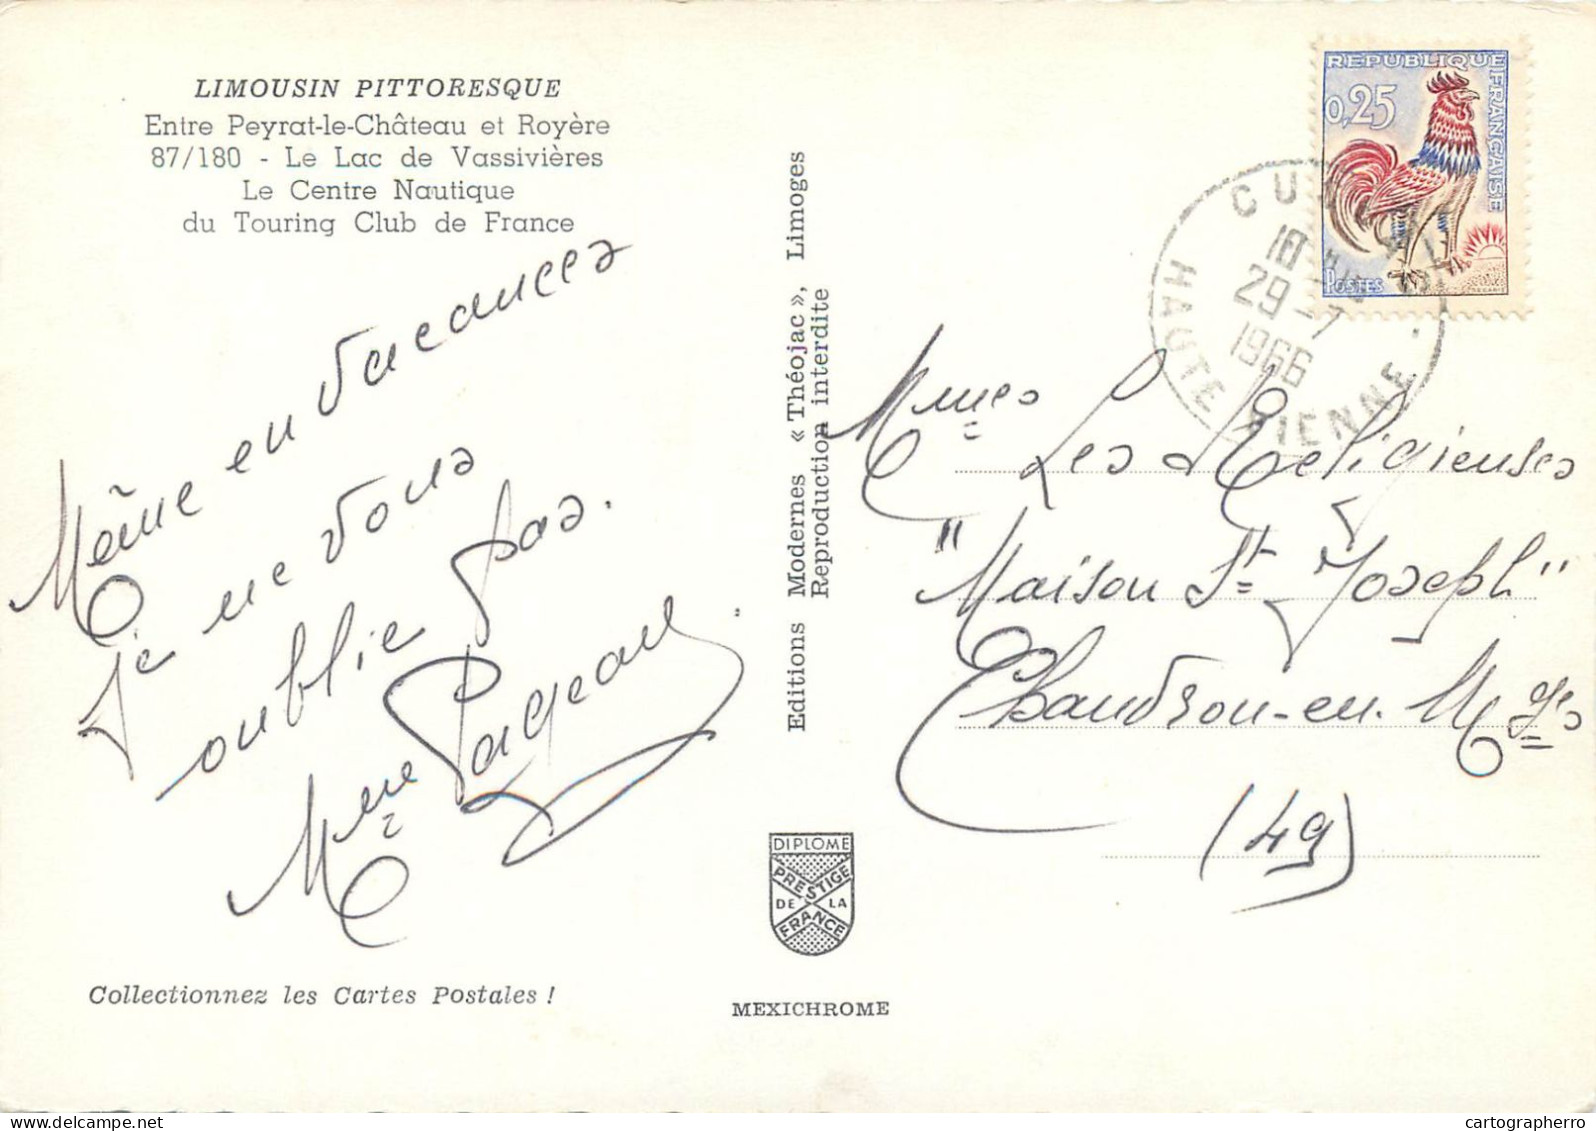 LIMOUSIN PITTORESQUE
Entre Peyrat-le-Château et Royère
87/180 - Le Lac de Vassivières
Le Centre Nautique
du Touring Club de France
Même en vacances
je ne vous
oublie pas.
Mme Pageau
Collectionnez les Cartes Postales !
Editions Modernes « Théojac », Limoges
Reproduction interdite
DIPLOME
PRESTIGE
DE LA
FRANCE
MEXICHROME
REPUBLIQUE FRANÇAISE
0,25
POSTES
18
29-7
1966
HAUTE VIENNE
Mmes Les Religieuses
"Maison St Joseph"
Chaudron-en-Mges
(49)
cartographerro